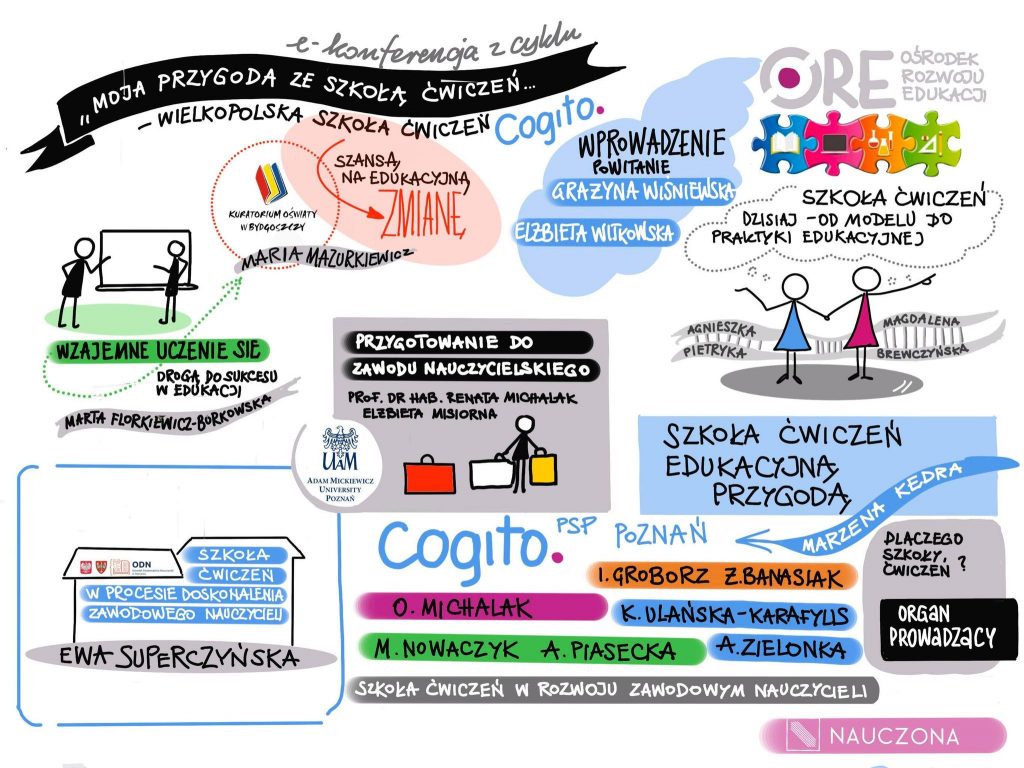 e-konferencja z cyklu
"MOJA PRZYGODA ZE SZKOŁĄ ĆWICZEŃ...
– WIELKOPOLSKA SZKOŁA ĆWICZEŃ Cogito.
ORE OŚRODEK
ROZWOJU
EDUKACJI
WPROWADZENIE
POWITANIE
GRAŻYNA WIŚNIEWSKA
ELŻBIETA WITKOWSKA
SZANSĄ
NA EDUKACYJNĄ
ZMIANĘ
KURATORIUM OŚWIATY
W BYDGOSZCZY
MARIA MAZURKIEWICZ
SZKOŁA ĆWICZEŃ
DZISIAJ – OD MODELU DO
PRAKTYKI EDUKACYJNEJ
AGNIESZKA
PIETRYKA
MAGDALENA
BREWCZYŃSKA
WZAJEMNE UCZENIE SIĘ
DROGĄ DO SUKCESU
W EDUKACJI
MARTA FLORKIEWICZ-BORKOWSKA
PRZYGOTOWANIE DO
ZAWODU NAUCZYCIELSKIEGO
PROF. DR HAB. RENATA MICHALAK
ELŻBIETA MISIORNA
UAM
ADAM MICKIEWICZ
UNIVERSITY
POZNAŃ
SZKOŁA ĆWICZEŃ
EDUKACYJNĄ
PRZYGODĄ
MARZENA KĘDRA
Cogito. PSP POZNAŃ
I. GROBORZ Z. BANASIAK
O. MICHALAK
K. UŁAŃSKA-KARAFYLIS
M. NOWACZYK A. PIASECKA
A. ZIELONKA
SZKOŁA ĆWICZEŃ W ROZWOJU ZAWODOWYM NAUCZYCIELI
DLACZEGO
SZKOŁY
ĆWICZEŃ ?
ORGAN
PROWADZĄCY
ODN
SZKOŁA
ĆWICZEŃ
W PROCESIE DOSKONALENIA
ZAWODOWEGO NAUCZYCIELI
EWA SUPERCZYŃSKA
NAUCZONA